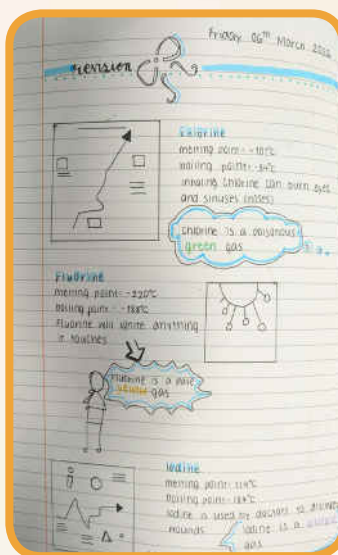 Friday 06th March
revision
Chlorine
melting point: -101°C
boiling point: -34°C
inhaling chlorine can burn eyes
and sinuses (noses)
chlorine is a poisonous
green gas
Fluorine
melting point: -220°C
boiling point: -188°C
Fluorine will ignite anything
it touches
Fluorine is a pale
yellow gas
Iodine
melting point: 114°C
boiling point: 184°C
Iodine is used by doctors to
wounds
Iodine is a
gas